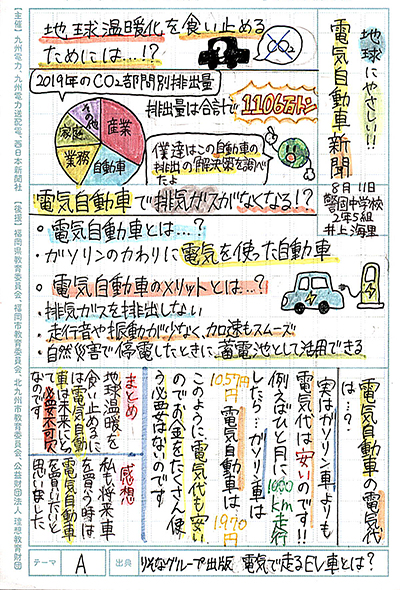 地球にやさしい!!
電気自動車新聞
8月11日
警固中学校
2年5組
井上海里
地球温暖化を食い止める
ためには…!?
CO2
2019年のCO2部門別排出量
その他
家庭
業務
産業
自動車
排出量は合計で
1106万トン
僕達はこの自動車の
排出の解決策を調べ
たよ
電気自動車で排気ガスがなくなる!?
・電気自動車とは…?
・ガソリンのかわりに電気を使った自動車
・電気自動車のメリットとは…?
・排気ガスを排出しない
・走行音や振動が少なく、加速もスムーズ
・自然災害で停電したときに、蓄電池として活用できる
電気自動車の電気代
は…?
実はガソリン車よりも
電気代は安いのです!!
例えばひと月に1000km走行
したら…ガソリン車は
1057円 電気自動車は 1970円
このように電気代も安い
のでお金をたくさん使
う必要はないのです。
まとめ
地球温暖を
食い止めるに
は電気自動
車は未来にと
って必要不可欠
なのです。
感想
私も将来車
を買う時は
電気自動車
を買いたいと
思いました。
テーマ A 出典 りそなグループ出版 電気で走るEV車とは?
【主催】九州電力、九州電力送配電、西日本新聞社 【後援】福岡県教育委員会、福岡市教育委員会、北九州市教育委員会、公益財団法人 理想教育財団